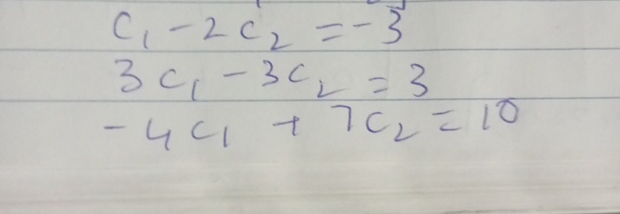 C₁ - 2C₂ = -3
3C₁ - 3C₂ = 3
-4C₁ + 7C₂ = 10